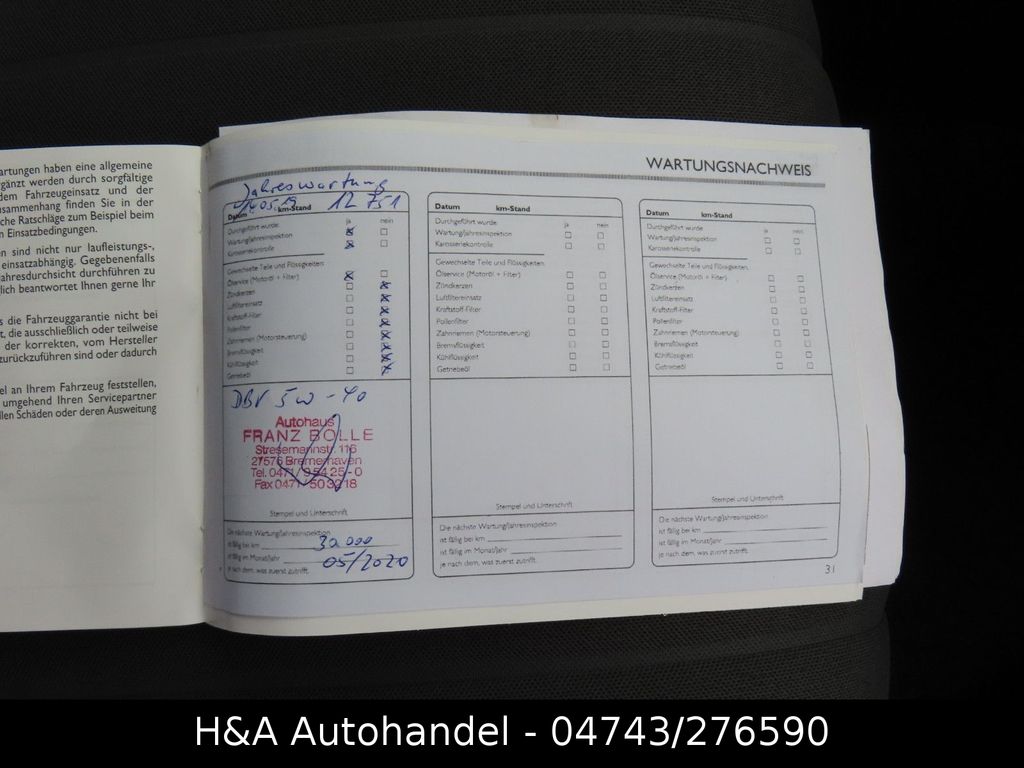 artungen haben eine allgemeine
gänzt werden durch sorgfältige
dem Fahrzeugeinsatz und der
sammenhang finden Sie in der
che Ratschläge zum Beispiel beim
n Einsatzbedingungen.
en sind nicht nur laufleistungs-,
einsatzabhängig. Gegebenenfalls
ahresdurchsicht durchführen zu
lich beantwortet Ihnen gerne Ihr
s die Fahrzeuggarantie nicht bei
t, die ausschließlich oder teilweise
der korrekten, vom Hersteller
zurückzuführen sind oder dadurch
el an Ihrem Fahrzeug feststellen,
umgehend Ihren Servicepartner
llen Schäden oder deren Ausweitung
WARTUNGSNACHWEIS
Jahreswartung
14.05.19 12 751
Datum km-Stand
Durchgeführt wurde ja nein
Wartung/Jahresinspektion
Karosseriekontrolle
Gewechselte Teile und Flüssigkeiten:
Ölservice (Motoröl + Filter)
Zündkerzen
Luftfiltereinsatz
Kraftstoff-Filter
Pollenfilter
Zahnriemen (Motorsteuerung)
Bremsflüssigkeit
Kühlflüssigkeit
Getriebeöl
5W-40
Autohaus
FRANZ BOLLE
Stresemannstr. 116
27576 Bremerhaven
Tel. 0471/95425-0
Fax 0471-503218
Stempel und Unterschrift
Die nächste Wartung/Jahresinspektion
ist fällig bei km 30.000
ist fällig im Monat/Jahr 05/2020
je nach dem, was zuerst zutrifft.
Datum km-Stand
Durchgeführt wurde ja nein
Wartung/Jahresinspektion
Karosseriekontrolle
Gewechselte Teile und Flüssigkeiten:
Ölservice (Motoröl + Filter)
Zündkerzen
Luftfiltereinsatz
Kraftstoff-Filter
Pollenfilter
Zahnriemen (Motorsteuerung)
Bremsflüssigkeit
Kühlflüssigkeit
Getriebeöl
Stempel und Unterschrift
Die nächste Wartung/Jahresinspektion
ist fällig bei km
ist fällig im Monat/Jahr
je nach dem, was zuerst zutrifft.
Datum km-Stand
Durchgeführt wurde ja nein
Wartung/Jahresinspektion
Karosseriekontrolle
Gewechselte Teile und Flüssigkeiten:
Ölservice (Motoröl + Filter)
Zündkerzen
Luftfiltereinsatz
Kraftstoff-Filter
Pollenfilter
Zahnriemen (Motorsteuerung)
Bremsflüssigkeit
Kühlflüssigkeit
Getriebeöl
Stempel und Unterschrift
Die nächste Wartung/Jahresinspektion
ist fällig bei km
ist fällig im Monat/Jahr
je nach dem, was zuerst zutrifft.
31
H&A Autohandel - 04743/276590